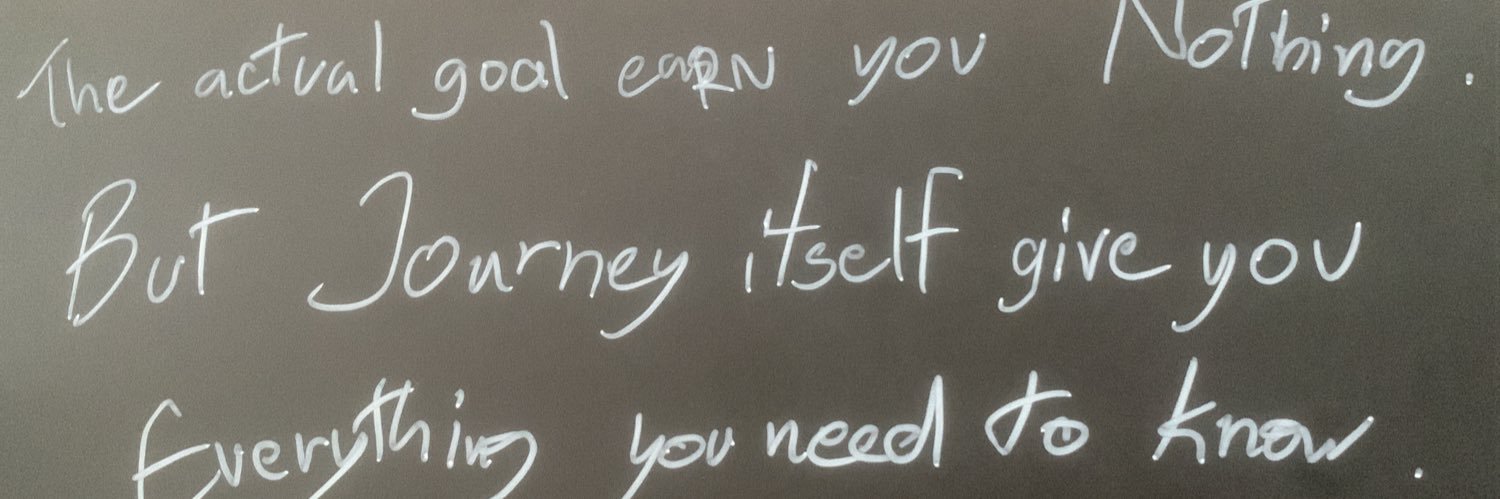 The actual goal eaRN you NoThing.
But Journey itself give you
Everything you need to know.